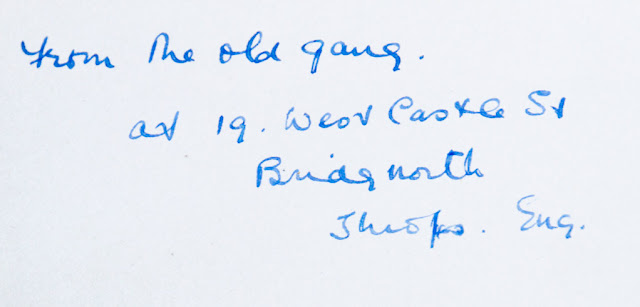 From the old gang.
at 19. West Castle St
Bridgnorth
Shrops. Eng.